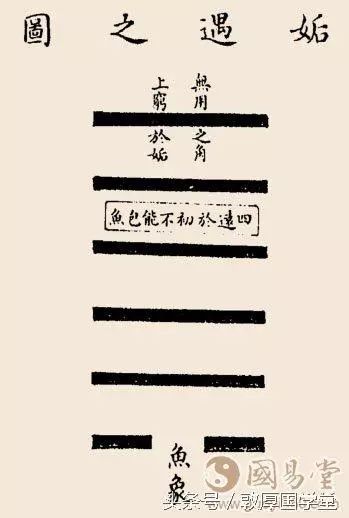 姤遇之圖
無用之角
上窮於姤
四遠於初不能包魚
魚象
國易堂
头条号/敦厚国学堂